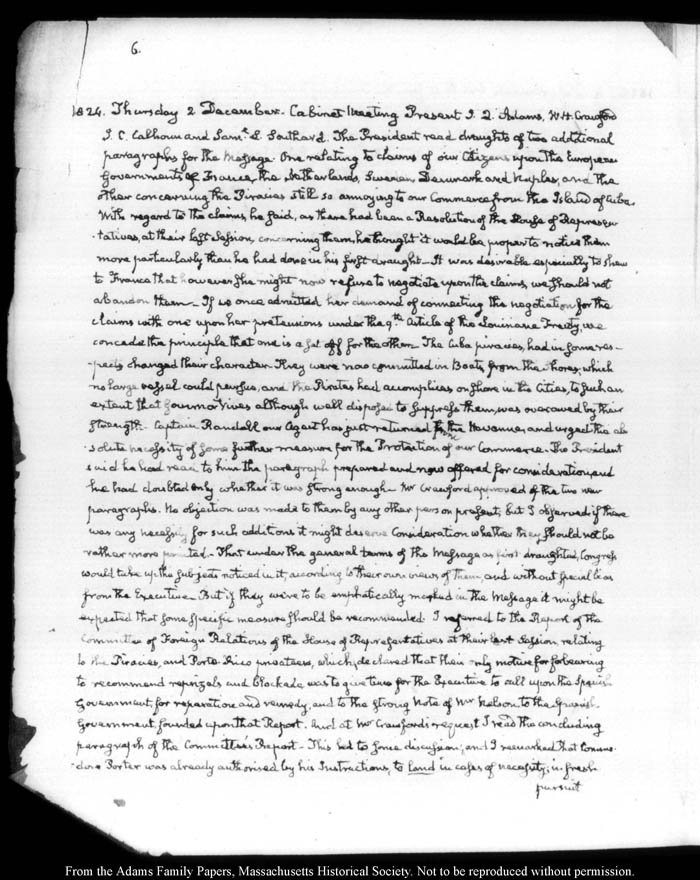 6.
1824. Thursday 2 December. Cabinet Meeting Present J. Q. Adams, W. H. Crawford
J. C. Calhoun and Saml. L. Southard. The President read draughts of two additional
paragraphs for the Message. One relating to claims of our Citizens upon the European
Governments of France, the Netherlands, Sweden, Denmark and Naples, and the
other concerning the Piracies still so annoying to our Commerce from the Island of Cuba.
With regard to the claims, he said, as there had been a Resolution of the House of Represen
-tatives, at their last Session, concerning them, he thought it would be proper to notice them
more particularly than he had done in his first draught. It was desirable especially to shew
to France that however she might now refuse to negotiate upon the claims, we should not
abandon them. If we once admitted her demand of connecting the negotiation for the
claims with one upon her pretensions under the 9th. Article of the Louisiana Treaty, we
concede the principle that one is a set off for the other. The Cuba piracies, had in some res-
pects changed their character. They were now committed in Boats, from the shores, which
no large vessel could pursue, and the Pirates had accomplices on shore in the Cities, to such an
extent that Governor Vives although well disposed to suppress them, was overawed by their
strength. Captain Randall our Agent has just returned from the Havanna, and urged the ab
-solute necessity of some further measure for the Protection of our Commerce. The President
said he had read to him the paragraph prepared and now offered for consideration, and
he had doubted only whether it was strong enough. Mr Crawford approved of the two new
paragraphs. No objection was made to them by any other person present, but I observed if there
was any necessity for such additions it might deserve Consideration whether they should not be
rather more pointed. That under the general terms of the Message as first draughted, Congress
would take up the subjects noticed in it, according to their own views of them, and without special bias
from the Executive. But if they were to be emphatically marked in the Message it might be
expected that some specific measure should be recommended. I referred to the Report of the
Committee of Foreign Relations of the House of Representatives at their last Session, relating
to the Piracies, and Porto-Rico privateers, which, declared that their only motive for forbearing
to recommend reprizals and blockade, was to give time for the Executive to call upon the Spanish
Government, for reparation and remedy, and to the strong Note of Mr Nelson, to the Spanish
Government, founded upon that Report. And at Mr Crawford's request I read the concluding
paragraph of the Committee's Report. This led to some discussion; and I remarked that Commo-
-dore Porter was already authorised by his Instructions, to land in cases of necessity; in fresh
pursuit
From the Adams Family Papers, Massachusetts Historical Society. Not to be reproduced without permission.